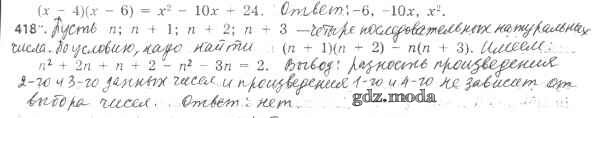 (x − 4)(x − 6) = x² − 10x + 24. Ответ: −6, −10x, x².
418°. Пусть n; n + 1; n + 2; n + 3 — четыре последовательных натуральных
числа. По условию, надо найти (n + 1)(n + 2) − n(n + 3). Имеем:
n² + 2n + n + 2 − n² − 3n = 2. Вывод: разность произведения
2-го и 3-го данных чисел и произведения 1-го и 4-го не зависит от
выбора чисел. Ответ: нет.
gdz.moda